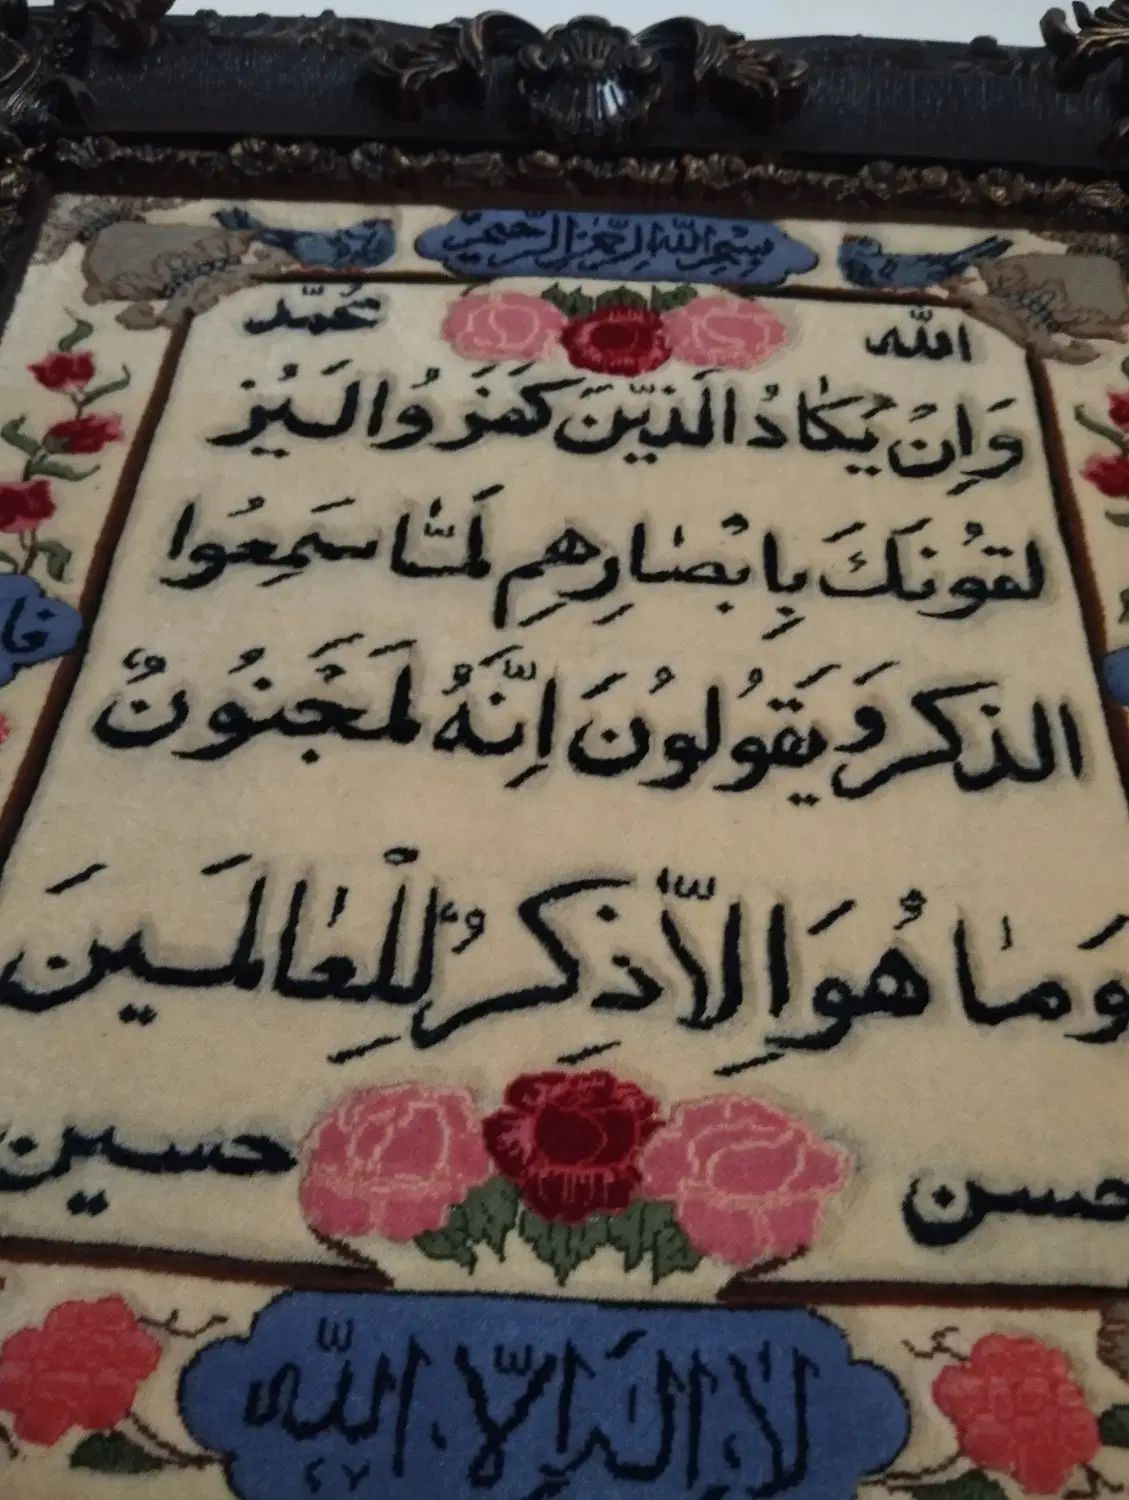 بِسْمِ اللّٰهِ الرَّحْمٰنِ الرَّحِيْمِ
اللّٰه
مُحَمّد
وَاِنْ يَكٰادُ الَذيّنَ كَفَرَوُا لَيُز
لقوُنَكَ بِاَبْصٰارِهِمِ لَمّٰا سَمِعُوا
الذكرَ وَ يَقُولوُنَ اِنَّهُ لَمَجْنوُنٌ
وَمٰا هُوَ اِلاّ ذِكرٌ لِلْعٰالَمينَ
حسن
حسين
لاٰ اِلهَ اِلاّ اللّه
فا